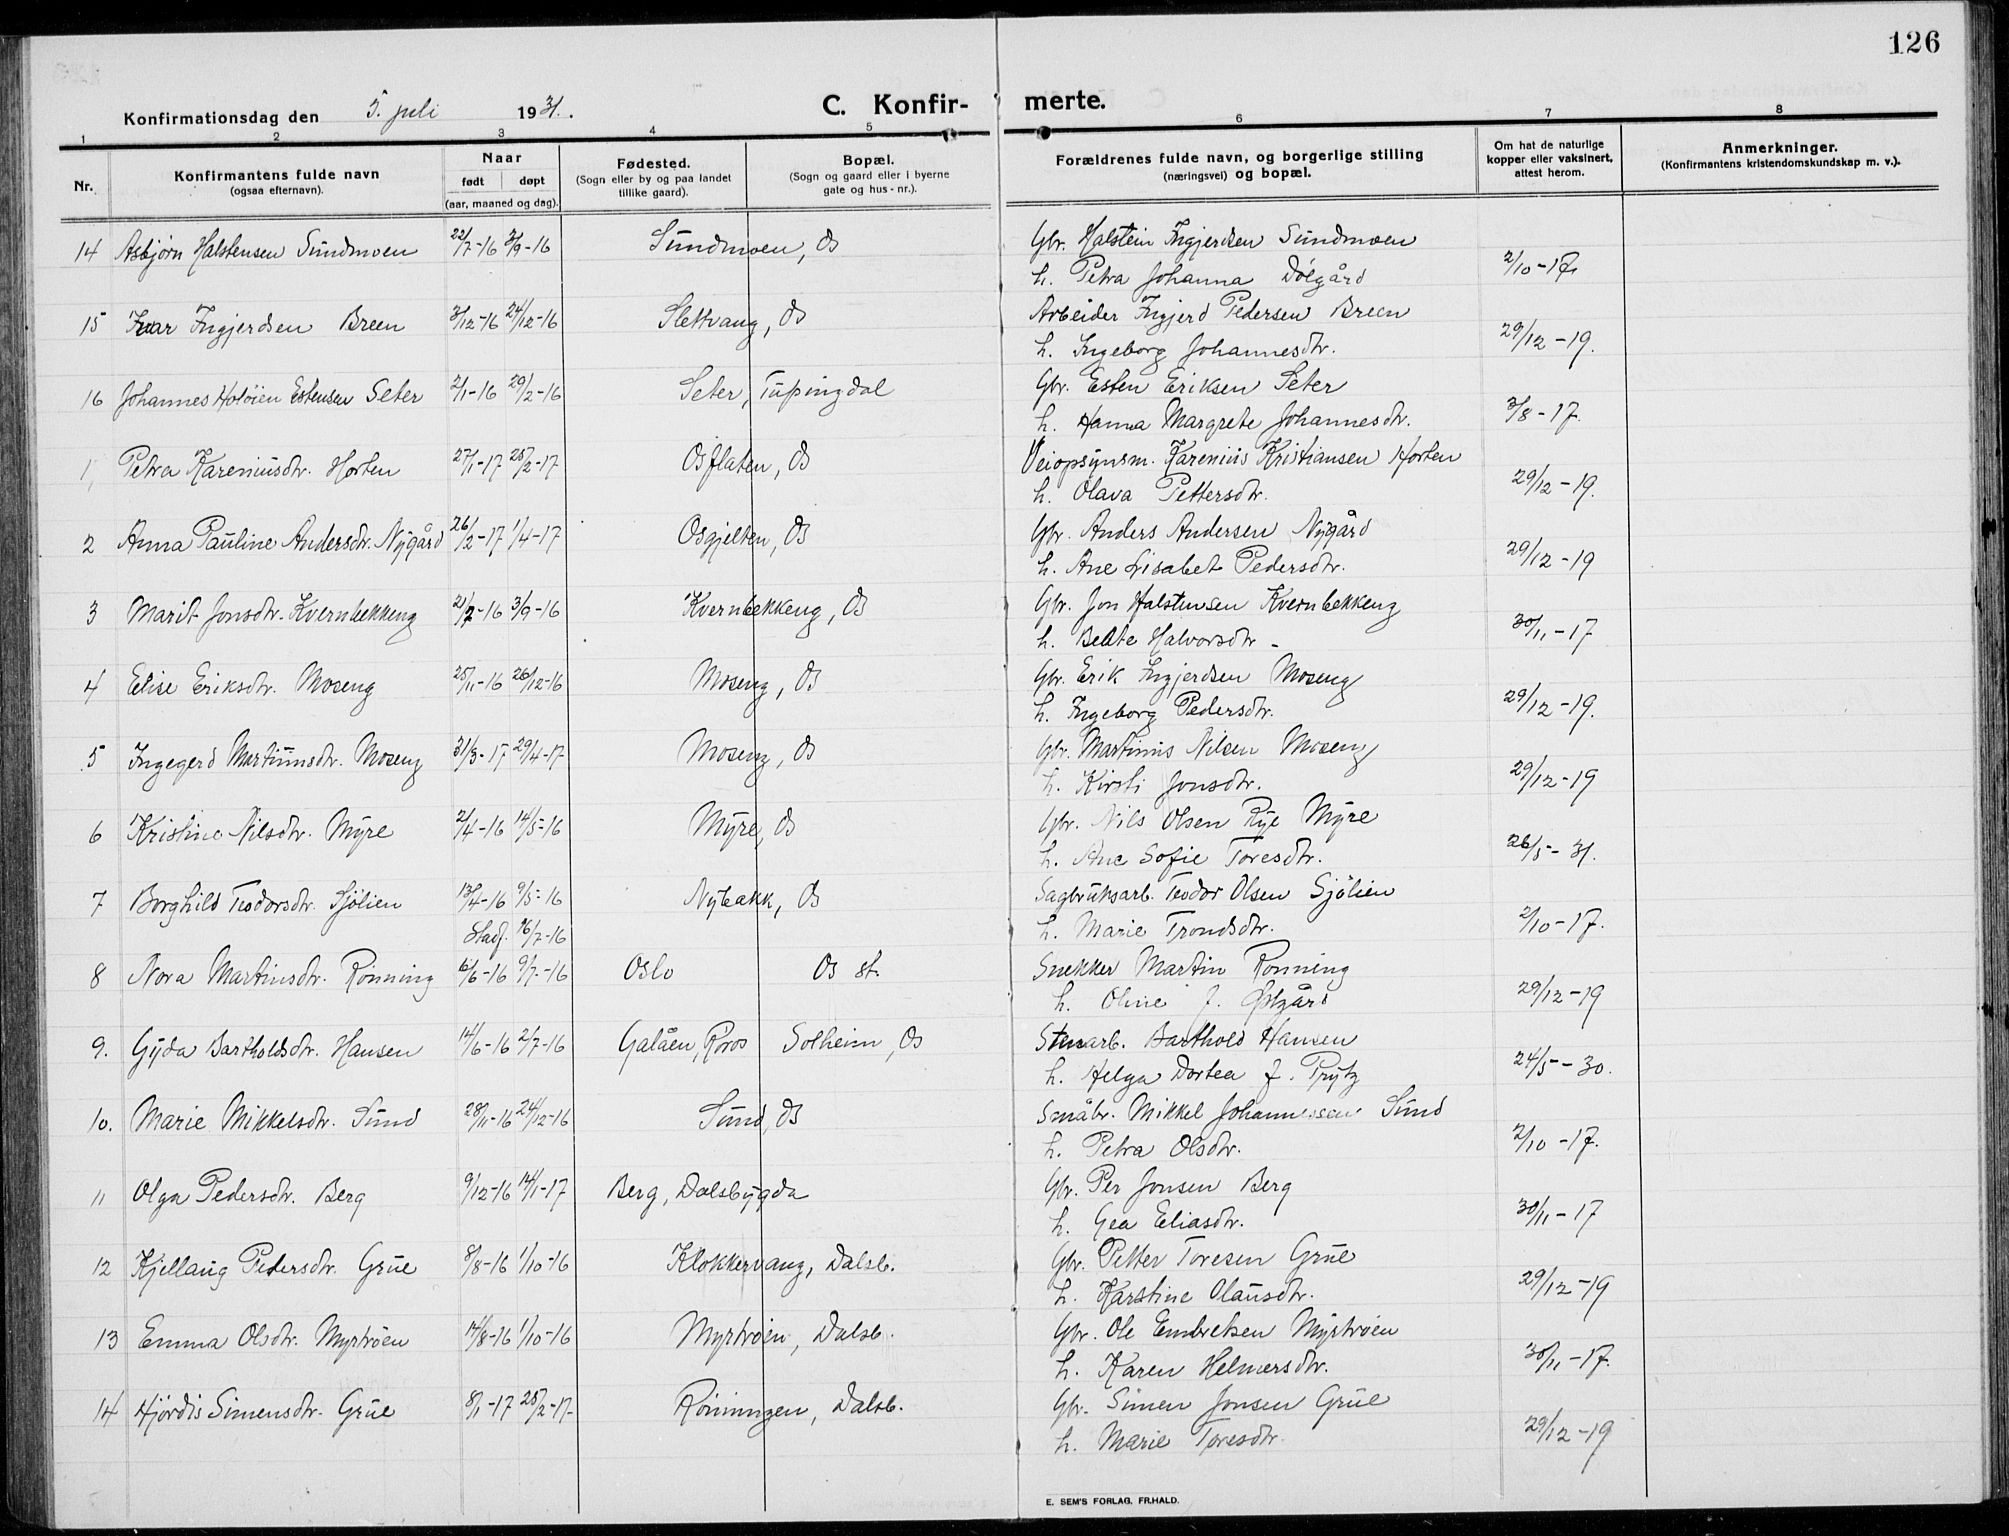 126
Konfirmationsdag den 5. juli 1931.
C. Konfir- merte.
1 2 3 4 5 6 7 8
Nr.
Konfirmantens fulde navn
(ogsaa efternavn).
Naar
født døpt
(aar, maaned og dag).
Fødested.
(Sogn eller by og paa landet
tillike gaard).
Bopæl.
(Sogn og gaard eller i byerne
gate og hus - nr.).
Forældrenes fulde navn, og borgerlige stilling
(næringsvei) og bopæl.
Om hat de naturlige
kopper eller vaksinert,
attest herom.
Anmerkninger.
(Konfirmantens kristendomskundskap m. v.).
14 Asbjørn Halstensen Sundmoen 22/7-16 3/9-16 Sundmoen, Os Gbr. Halstein Ingjerdsen Sundmoen
h. Petra Johanna Dølgård 2/10-17
15 Ivar Ingjerdsen Breen 3/12-16 24/12-16 Slettvang, Os Arbeider Ingjerd Pedersen Breen
h. Ingeborg Johannesdtr. 29/12-19.
16 Johannes Holøien Estensen Seter 2/1-16 29/2-16 Seter, Tufsingdal Gbr. Esten Eriksen Seter
h. Hanna Margrete Johannesdtr. 3/8-17.
1, Petra Kareniusdtr. Horten 27/1-17 25/2-17 Osflaten, Os Veiopsynsm. Karenius Kristiansen Horten
h. Olava Pettersdtr. 29/12-19.
2 Anna Pauline Andersdtr. Nygård 26/2-17 1/4-17 Osgjelten, Os Gbr. Anders Andersen Nygård
h. Ane Lisabet Pedersdtr. 29/12-19
3 Marit Jonsdtr. Kvernbekkeng 21/7-16 3/9-16 Kvernbekkeng, Os Gbr. Jon Halstensen Kvernbekkeng
h. Beate Halvorsdtr - 30/11-17
4 Elise Eriksdtr. Moseng 25/11-16 26/12-16 Moseng, Os Gbr. Erik Ingjerdsen Moseng
h. Ingeborg Pedersdtr. 29/12-19.
5 Ingegerd Martinusdtr. Moseng 31/3-17 29/4-17 Moseng, Os Gbr. Martinus Nilsen Moseng
h. Kirsti Jonsdtr. 29/12-19
6 Kristine Nilsdtr. Myre 2/4-16 14/5-16 Myre, Os Gbr. Nils Olsen Rye Myre
h. Ane Sofie Toresdtr. 26/5-31.
7 Borghild Teodorsdtr. Sjølien 13/4-16 9/5-16 Nybakk, Os Sagbruksarb. Teodor Olsen Sjølien
Stadf. 16/7-16 h. Marie Trondsdtr. 2/10-17.
8 Nora Martinsdtr. Rønning 6/6-16 9/7-16 Oslo Os st. Snekker Martin Rønning
h. Oline f. Østgård 29/12-19
9. Gyda Bartholdsdtr. Hansen 14/6-16 2/7-16 Galåen, Røros Solheim, Os Stenarb. Barthold Hansen
h. Helga Dortea f. Prytz 24/5-30.
10. Marie Mikkelsdtr. Sund 28/11-16 24/12-16 Sund, Os Småbr. Mikkel Johannessen Sund
h. Petra Olsdtr. 2/10-17.
11 Olga Pedersdtr. Berg 9/12-16 14/1-17 Berg, Dalsbygda Gbr. Per Jonsen Berg
h. Gea Eliasdtr. 30/11-17
12 Kjellaug Pedersdtr. Grue 8/8-16 1/10-16 Klokkervang, Dalsb. Gbr. Petter Toresen Grue
h. Karstine Olausdtr. 29/12-19
13 Emma Olsdtr. Myrtrøen 14/8-16 1/10-16 Myrtrøen, Dalsb. Gbr. Ole Embretsen Myrtrøen
h. Karen Helmersdtr. 30/11-17.
14 Hjørdis Simensdtr. Grue 8/1-17 25/2-17. Rønningen, Dalsb. Gbr. Simen Jonsen Grue
h. Marie Toresdtr. 29/12-19
E. SEM'S FORLAG, FR.HALD.